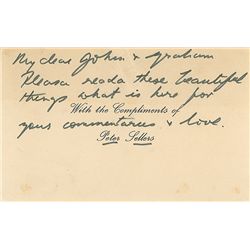 My dear John & Graham
Please reada these beautiful
things what is here for
With the Compliments of
your commentaries & love.
Peter Sellers